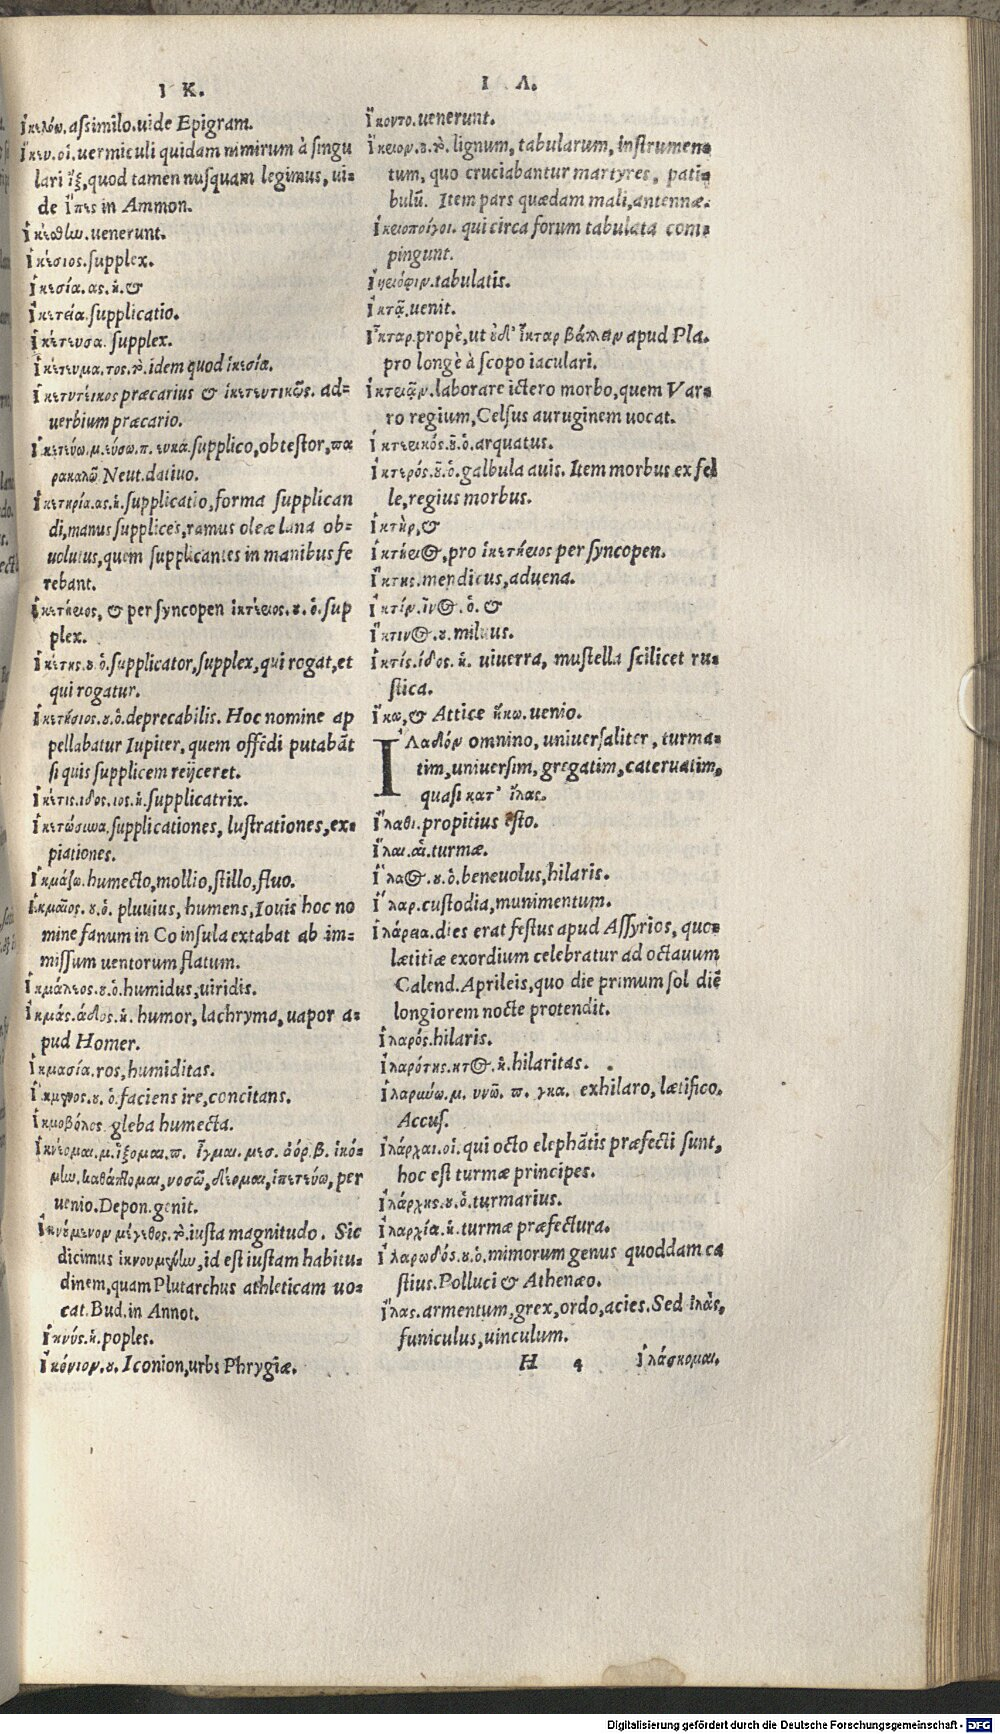 I K.
ἰκελόω. aſsimilo. uide Epigram.
ἴκεν. οἱ. uermiculi quidam nimirum à ſingu
lari ἴξ, quod tamen nuſquam legimus, ui-
de ἴπες in Ammon.
uenerunt.
ἱκέσιος. ſupplex.
ἱκεσία. ας. ἡ. &
ἱκετεία. ſupplicatio.
ἱκέτευσα. ſupplex.
ἱκέτευμα. τος. τὸ. idem quod ἱκεσία.
præcarius & ἱκετευτικῶς. ad-
uerbium præcario.
ἱκετεύω. μ. εύσω. π. ευκα. ſupplico, obteſtor, πα
ρακαλῶ Neut. datiuo.
ἱκετηρία. ας. ἡ. ſupplicatio, forma ſupplican
di, manus ſupplices, ramus oleæ lana ob-
uolutus, quem ſupplicantes in manibus fe
rebant.
& per ſyncopen ȣ. ὁ. ſup
plex.
ἱκέτης. ȣ. ὁ. ſupplicator, ſupplex, qui rogat, et
qui rogatur.
ἱκετήσιος. ȣ. ὁ. deprecabilis. Hoc nomine ap
pellabatur Iupiter, quem offēdi putabāt
ſi quis ſupplicem reijceret.
ἱκέτις. ιδος. ιος. ἡ. ſupplicatrix.
ſupplicationes, luſtrationes, ex-
piationes.
ἰκμάζω. humecto, mollio, ſtillo, fluo.
ἰκμαῖος. ȣ. ὁ. pluuius, humens, Iouis hoc no
mine fanum in Co inſula extabat ab im-
miſſum uentorum flatum.
ἰκμάλεος. ȣ. ὁ. humidus, uiridis.
ἰκμάς. άδος. ἡ. humor, lachryma, uapor a-
pud Homer.
ἰκμασία. ros, humiditas.
ȣ. ὁ. faciens ire, concitans.
ἰκμοβόλος. gleba humecta.
ἱκνέομαι. μ. ἵξομαι. π. ἵγμαι. μεσ. ἀόρ. β. ἱκό-
μην. καθάπτομαι, νοσῶ, δέομαι, ἱκετεύω, per
uenio. Depon. genit.
ἱκνούμενον μέγεθος. τὸ. iuſta magnitudo. Sic
dicimus ἱκνουμένην, id eſt iuſtam habitu-
dinem, quam Plutarchus athleticam uo-
cat. Bud. in Annot.
ἰκνύς. ἡ. poples.
ἰκόνιον. ȣ. Iconion, urbs Phrygiæ.
I Λ.
ἵκοντο. uenerunt.
ἴκριον. ȣ. τὸ. lignum, tabularum, inſtrumen-
tum, quo cruciabantur martyres, pati-
bulū. Item pars quædam mali, antennæ.
ἰκριοποίοι. qui circa forum tabulata com-
pingunt.
ἰκριόφιν. tabulatis.
ἰκτᾷ. uenit.
ἴκταρ. propè, ut ȣδ' ἴκταρ βάλλειν apud Pla.
pro longè à ſcopo iaculari.
ἰκτεριᾷν. laborare ictero morbo, quem Var-
ro regium, Celſus auruginem uocat.
ἰκτερικός. ȣ͂. ὁ. arquatus.
ἰκτερός. ȣ͂. ὁ. galbula auis. Item morbus ex fel
le, regius morbus.
ἱκτήρ, &
pro per ſyncopen.
ἵκτης. mendicus, aduena.
ἰκτίν. ῖνος. ὁ. &
ἴκτινος. ȣ. miluus.
ἰκτίς. ίδος. ἡ. uiuerra, muſtella ſcilicet ru-
ſtica.
ἵκω, & Attice ἥκω. uenio.
ἸΛαδόν omnino, uniuerſaliter, turma-
tim, uniuerſim, gregatim, cateruatim,
quaſi κατ' ἴλας.
ἵλαθι. propitius eſto.
ἴλαι. αἱ. turmæ.
ἵλαος. ȣ. ὁ. beneuolus, hilaris.
ἴλαρ. cuſtodia, munimentum.
ἱλάρεια. dies erat feſtus apud Aſſyrios, quo-
lætitiæ exordium celebratur ad octauum
Calend. Aprileis, quo die primum ſol diē
longiorem nocte protendit.
ἱλαρός. hilaris.
ἱλαρότης. ητος. ἡ. hilaritas.
ἱλαρύνω. μ. υνῶ. π. γκα. exhilaro, lætifico.
Accuſ.
ἰλάρχαι. οἱ. qui octo elephātis præfecti ſunt,
hoc eſt turmæ principes.
ἰλάρχης. ȣ. ὁ. turmarius.
ἰλαρχία. ἡ. turmæ præfectura.
ἱλαρῳδός. ȣ. ὁ. mimorum genus quoddam ca
ſtius. Polluci & Athenæo.
ἴλας. armentum, grex, ordo, acies. Sed ἰλὰς,
funiculus, uinculum.
H 4 ἱλάσκομαι.
Digitalisierung gefördert durch die Deutsche Forschungsgemeinschaft - DFG